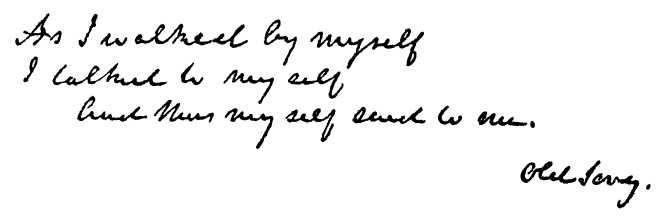 As I walked by myself
I talked to my self
And thus my self said to me.
Old Song.